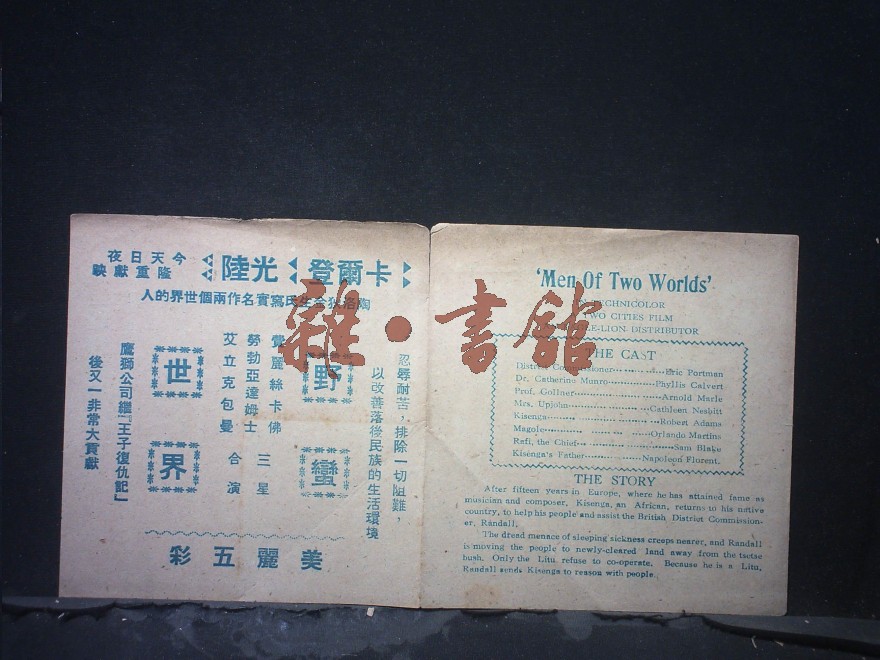 卡爾登 光陸
今天日夜
隆重獻映
氏寫實名作兩個世界的人
忍辱耐苦，排除一切阻難，
以改善落後民族的生活環境
野蠻
世界
麗絲卡佛
勞勃亞達姆士
艾立克包曼
三星
合演
鷹獅公司繼「王子復仇記」
後又一非常大貢獻
美麗五彩
'Men Of Two Worlds'
TECHNICOLOR
TWO CITIES FILM
LE-LION DISTRIBUTOR
THE CAST
District Commissioner Eric Portman
Dr. Catherine Munro Phyllis Calvert
Prof. Gollner Arnold Marle
Mrs. Upjohn Cathleen Nesbitt
Kisenga Robert Adams
Magole Orlando Martins
Rafi, the Chief Sam Blake
Kisenga's Father Napoleon Florent.
THE STORY
After fifteen years in Europe, where he has attained fame as
musician and composer, Kisenga, an African, returns to his native
country, to help his people and assist the British District Commission-
er, Randall.
The dread menace of sleeping sickness creeps nearer, and Randall
is moving the people to newly-cleared land away from the tsetse
bush. Only the Litu refuse to co-operate. Because he is a Litu,
Randall sends Kisenga to reason with people.
雜·書館